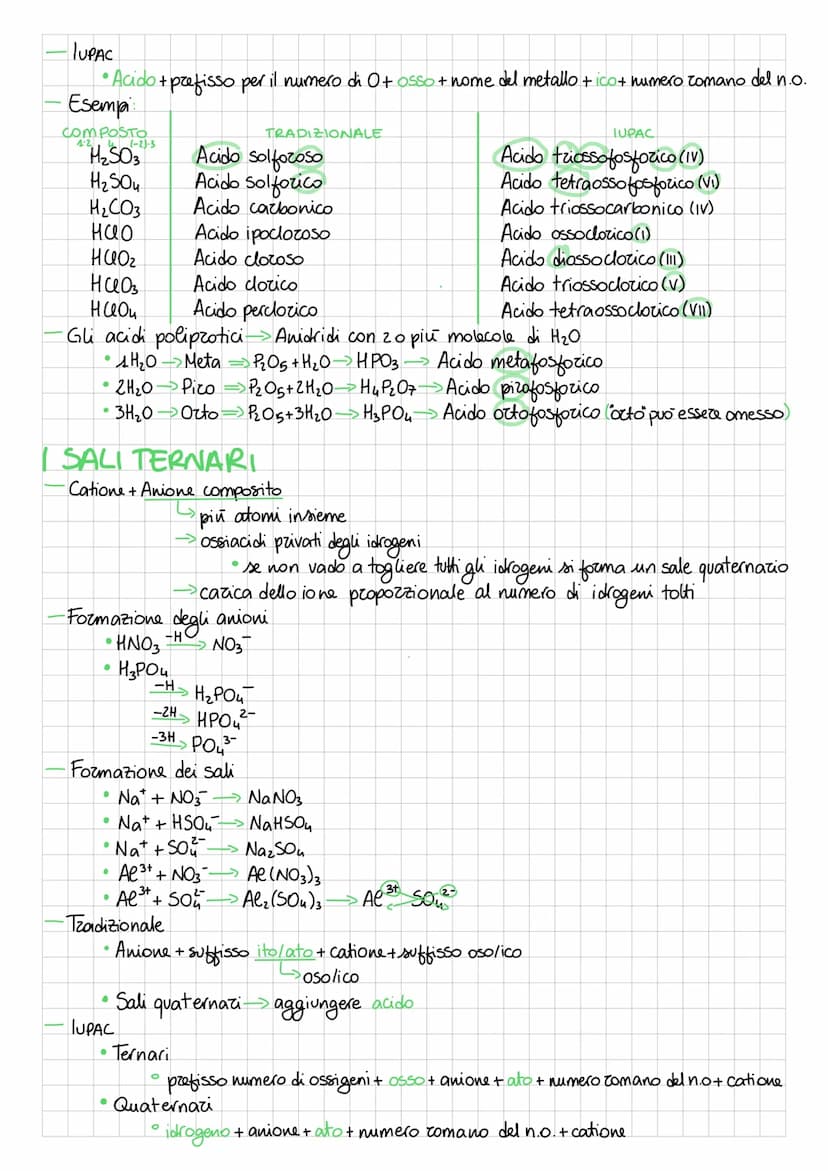 — IUPAC
• Acido + prefisso per il numero di O + osso + nome del metallo + ico + numero romano del n.o.
— Esempi:
COMPOSTO TRADIZIONALE IUPAC
+1·2 4 (-2)·3
H₂SO₃ Acido solforoso Acido triossofosforico (IV)
H₂SO₄ Acido solforico Acido tetraossofosforico (VI)
H₂CO₃ Acido carbonico Acido triossocarbonico (IV)
HClO Acido ipocloroso Acido ossoclorico (I)
HClO₂ Acido cloroso Acido diossoclorico (III)
HClO₃ Acido clorico Acido triossoclorico (V)
HClO₄ Acido perclorico Acido tetraossoclorico (VII)
— Gli acidi poliprotici → Anidridi con 2 o più molecole di H₂O
• 1H₂O → Meta ⇒ P₂O₅ + H₂O → HPO₃ → Acido metafosforico
• 2H₂O → Piro ⇒ P₂O₅ + 2H₂O → H₄P₂O₇ → Acido pirofosforico
• 3H₂O → Orto ⇒ P₂O₅ + 3H₂O → H₃PO₄ → Acido ortofosforico ("orto" può essere omesso)
I SALI TERNARI
— Catione + Anione composito
↳ più atomi insieme
→ ossiacidi privati degli idrogeni
• se non vado a togliere tutti gli idrogeni si forma un sale quaternario
→ carica dello ione proporzionale al numero di idrogeni tolti
— Formazione degli anioni
• HNO₃ –H→ NO₃⁻
• H₃PO₄
–H→ H₂PO₄⁻
–2H→ HPO₄²⁻
–3H→ PO₄³⁻
— Formazione dei sali
• Na⁺ + NO₃⁻ → NaNO₃
• Na⁺ + HSO₄⁻ → NaHSO₄
• Na⁺ + SO₄²⁻ → Na₂SO₄
• Al³⁺ + NO₃⁻ → Al(NO₃)₃
• Al³⁺ + SO₄²⁻ → Al₂(SO₄)₃ → Al³⁺ SO₄²⁻
— Tradizionale
• Anione + suffisso ito/ato + catione + suffisso oso/ico
↳ oso/ico
• Sali quaternari → aggiungere acido
— IUPAC
• Ternari
° prefisso numero di ossigeni + osso + anione + ato + numero romano del n.o + catione
• Quaternari
° idrogeno + anione + ato + numero romano del n.o. + catione